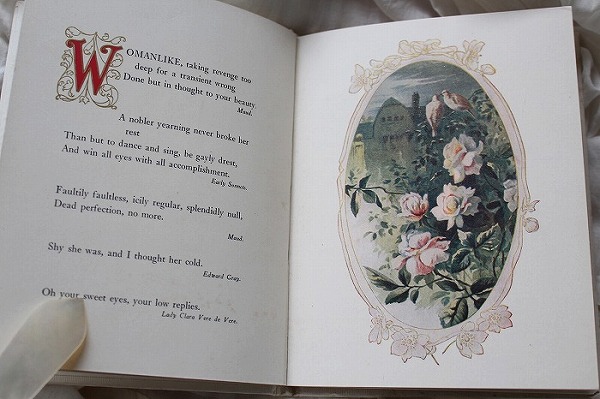 WOMANLIKE, taking revenge too
deep for a transient wrong
Done but in thought to your beauty.
Maud.
A nobler yearning never broke her
rest
Than but to dance and sing, be gayly drest,
And win all eyes with all accomplishment.
Early Sonnets.
Faultily faultless, icily regular, splendidly null,
Dead perfection, no more.
Maud.
Shy she was, and I thought her cold.
Edward Gray.
Oh your sweet eyes, your low replies.
Lady Clara Vere de Vere.